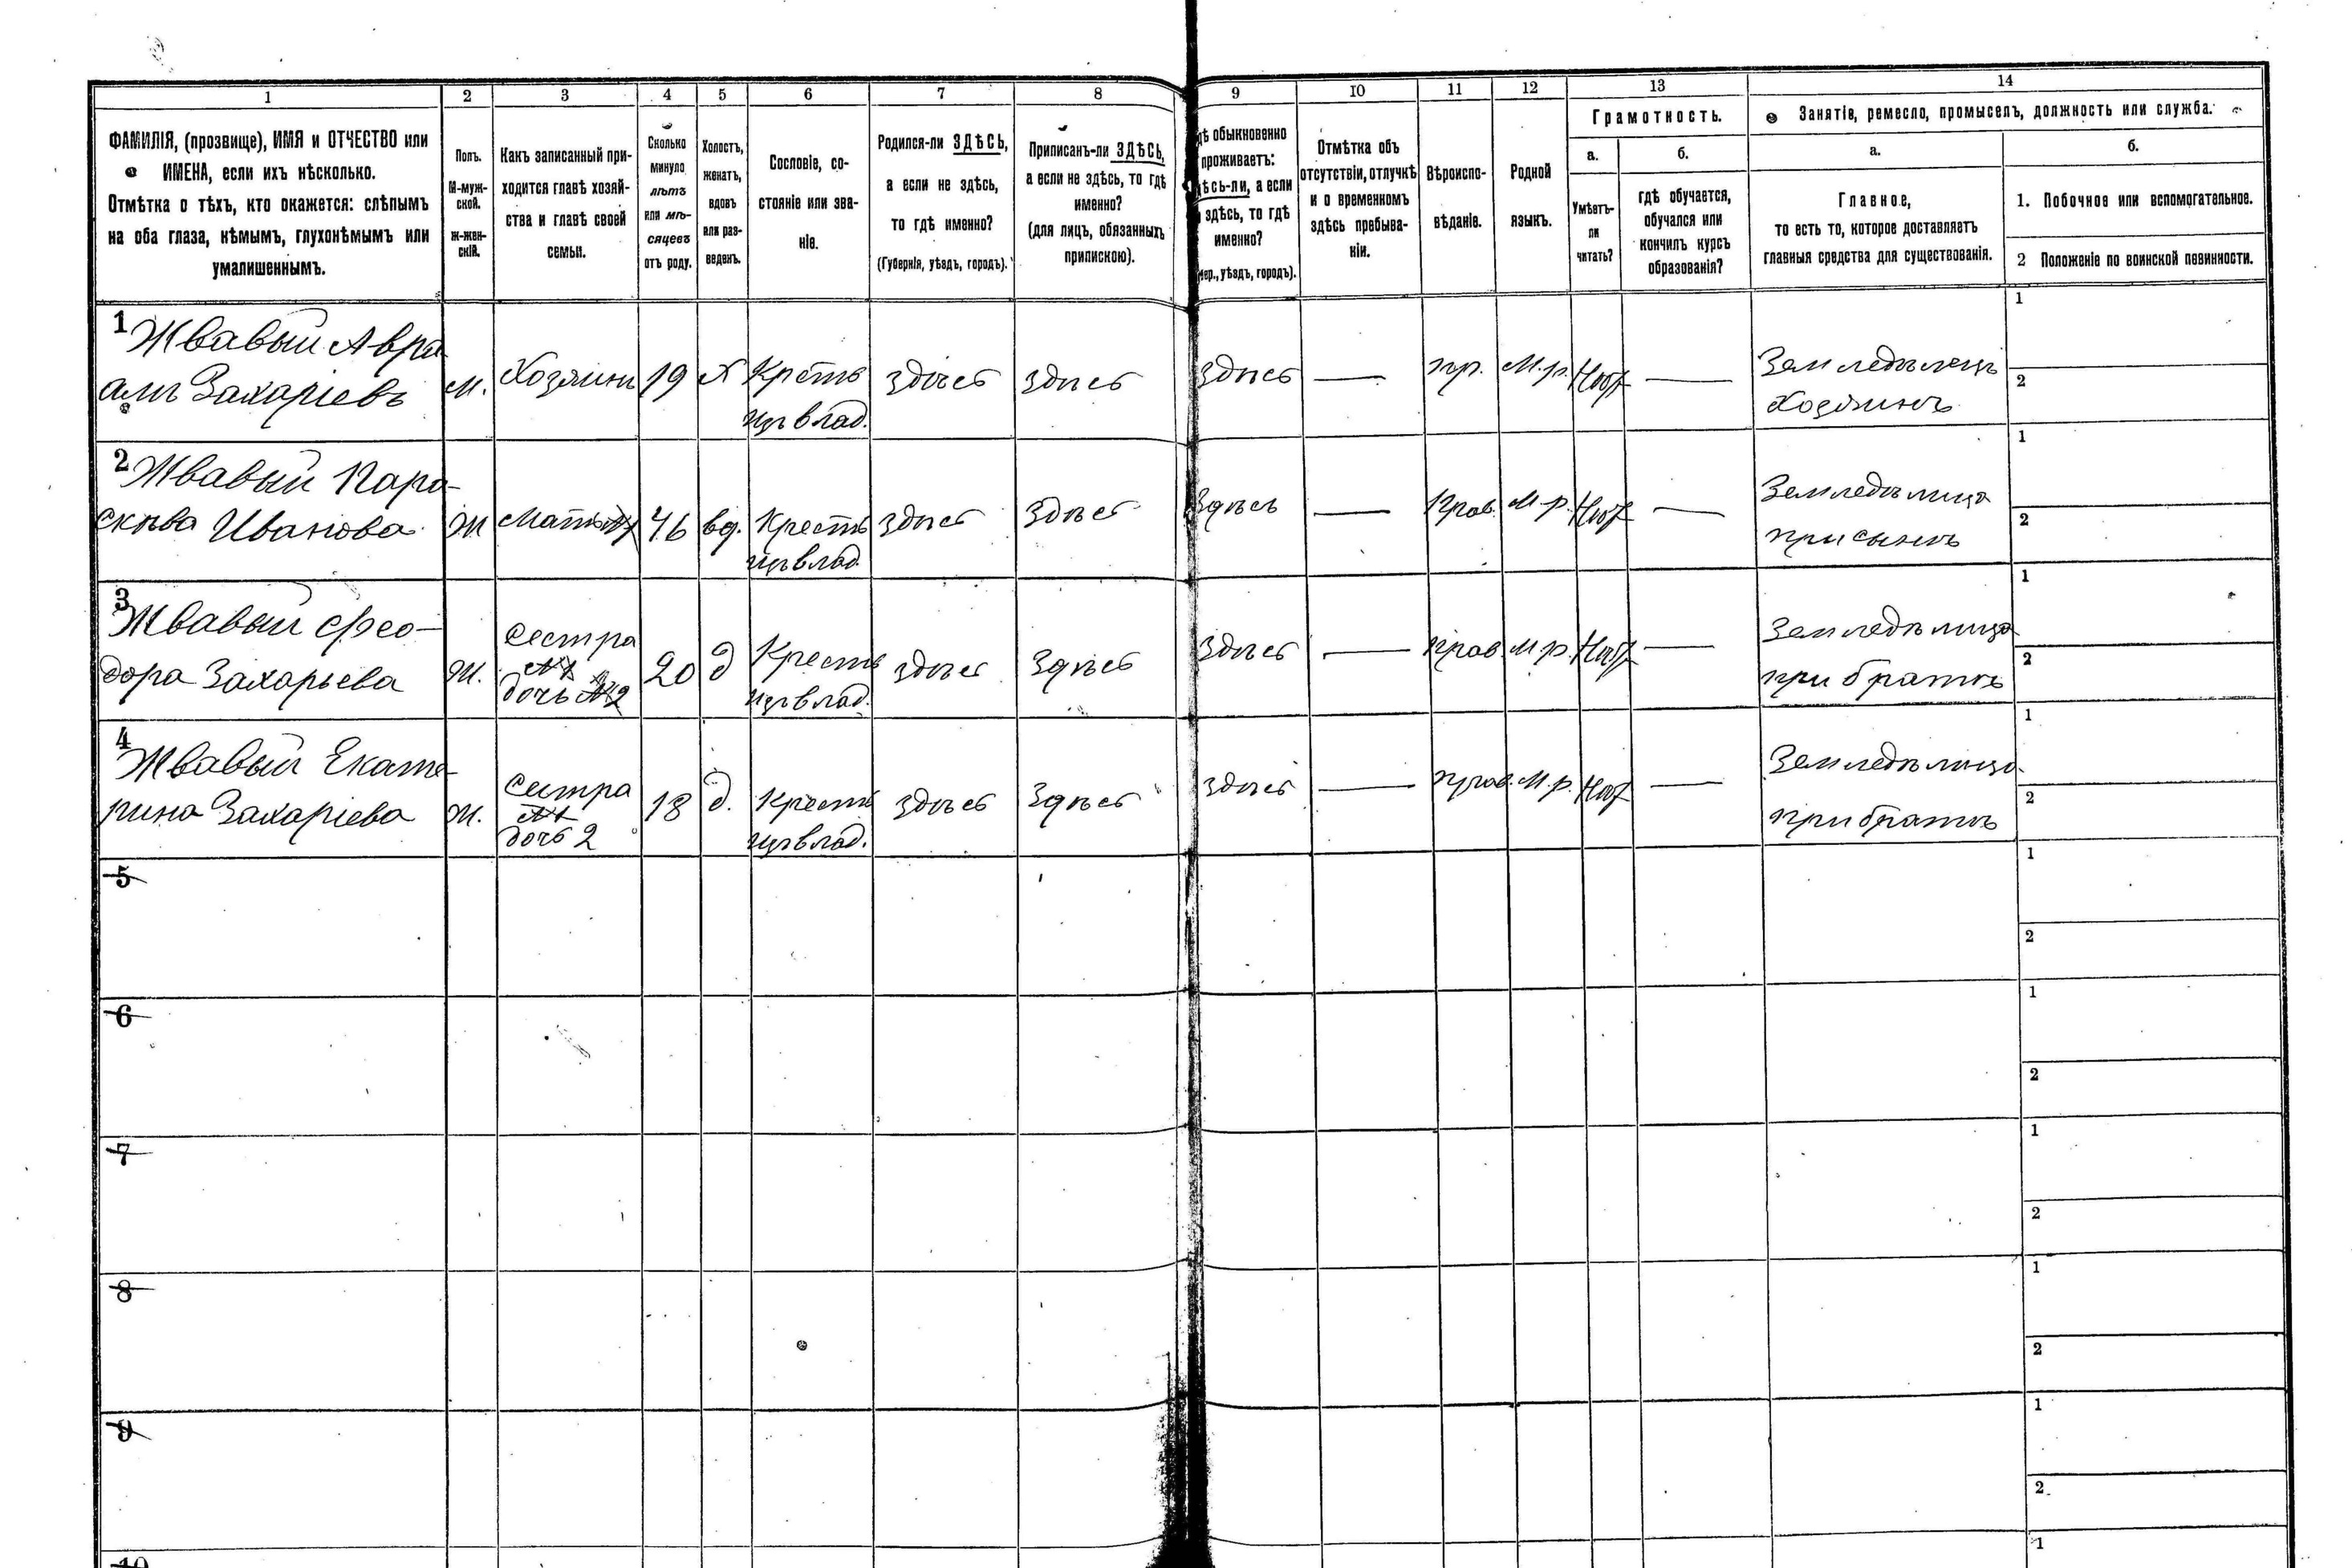 1 2 3 4 5 6 7 8 9 10 11 12 13 14
ФАМИЛІЯ, (прозвище), ИМЯ и ОТЧЕСТВО или
ИМЕНА, если ихъ нѣсколько.
Отмѣтка о тѣхъ, кто окажется: слѣпымъ
на оба глаза, нѣмымъ, глухонѣмымъ или
умалишеннымъ.
Полъ.
М-муж-
ской.
Ж-жен-
скій.
Какъ записанный при-
ходится главѣ хозяй-
ства и главѣ своей
семьи.
Сколько
минуло
лѣтъ
или мѣ-
сяцевъ
отъ роду.
Холостъ,
женатъ,
вдовъ
или раз-
веденъ.
Сословіе, со-
стояніе или зва-
ніе.
Родился-ли ЗДѢСЬ,
а если не здѣсь,
то гдѣ именно?
(Губернія, уѣздъ, городъ).
Приписанъ-ли ЗДѢСЬ,
а если не здѣсь, то гдѣ
именно?
(для лицъ, обязанныхъ
припискою).
дѣ обыкновенно
проживаетъ:
ѣсь-ли, а если
здѣсь, то гдѣ
именно?
бер., уѣздъ, городъ).
Отмѣтка объ
отсутствіи, отлучкѣ
и о временномъ
здѣсь пребыва-
ніи.
Вѣроиспо-
вѣданіе.
Родной
языкъ.
Грамотность.
а.
Умѣетъ-
ли
читать?
б.
гдѣ обучается,
обучался или
кончилъ курсъ
образованія?
Занятіе, ремесло, промыселъ, должность или служба.
а.
Главное,
то есть то, которое доставляетъ
главныя средства для существованія.
б.
1. Побочное или вспомогательное.
2 Положеніе по воинской повинности.
1 Жвавый Авра
амъ Захаріевъ
м.
Хозяинъ
19
х
Крестъ
изъ влад.
здѣсь
здѣсь
здѣсь
—
пр.
М.р.
Нѣт
—
Земледѣлецъ
Хозяинъ
1
2
2 Жвавый Пара-
скѣва Иванова
Ж
Мать
46
вд.
Крестъ
изъ влад.
здѣсь
здѣсь
здѣсь
—
Прав.
М.р.
Нѣт
—
Земледѣлица
при сынѣ
1
2
3 Жвавый Фео-
дора Захарьева
Ж.
Сестра
№1
дочь №2
20
д
Крестъ
изъ влад.
здѣсь
здѣсь
здѣсь
—
прав.
М.р.
Нѣт
—
Земледѣлица
при братѣ
1
2
4 Жвавый Екате-
рина Захаріева
Ж.
Сестра
№1
дочь 2
18
д.
Крестъ
изъ влад.
здѣсь
здѣсь
здѣсь
—
прав.
М.р.
Нѣт
—
Земледѣлица
при братѣ
1
2
5
1
2
6
1
2
7
1
2
8
1
2
9
1
2
10
1